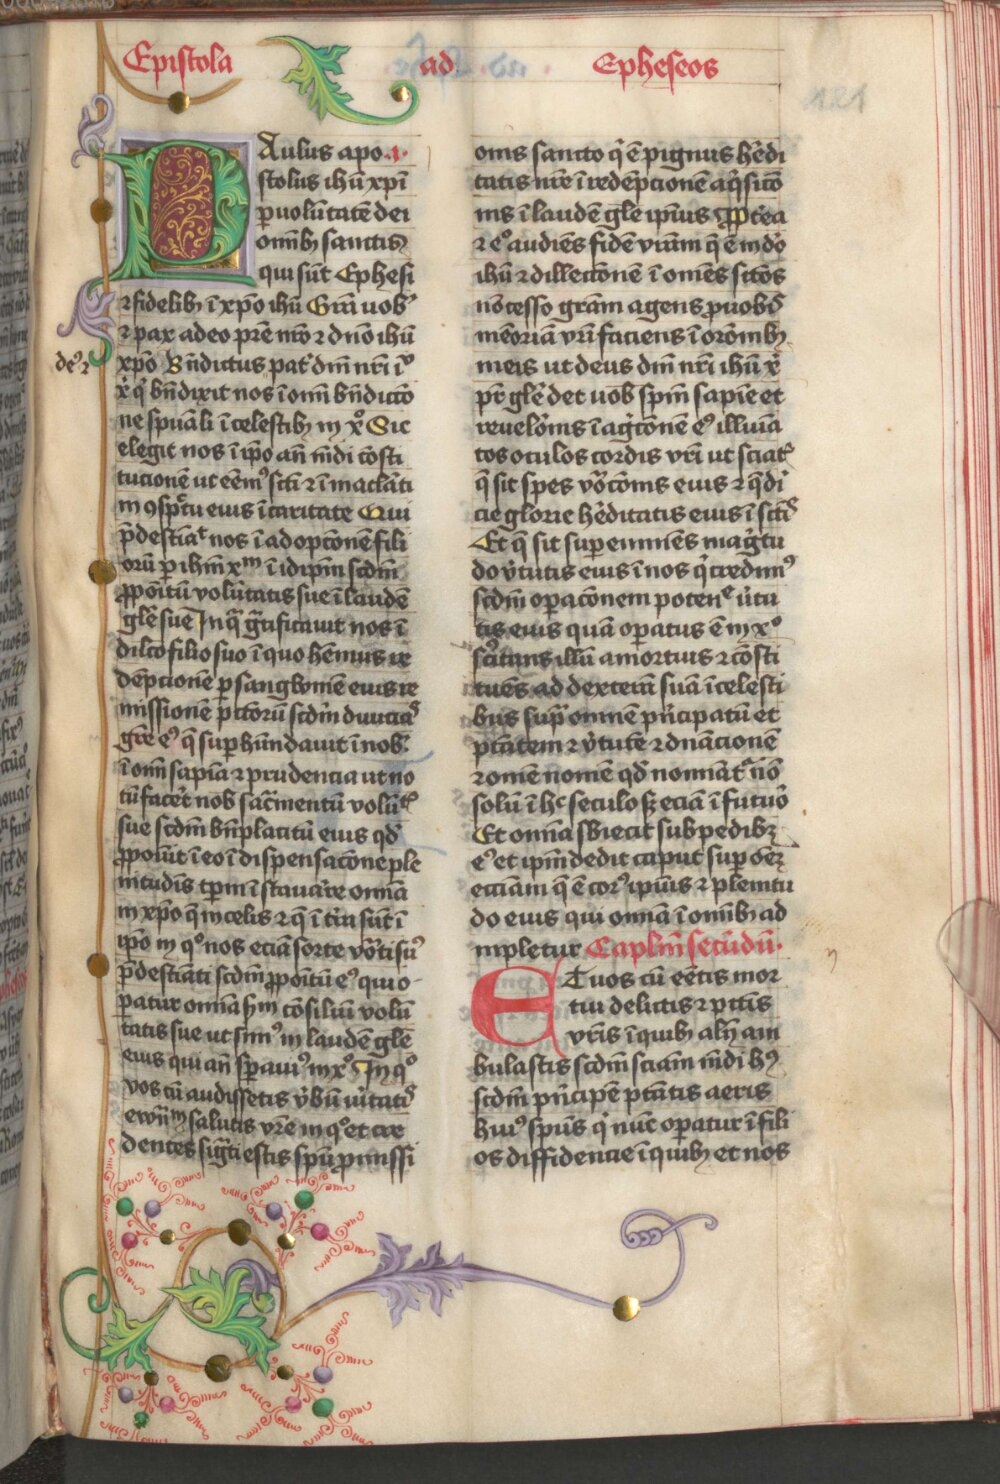 Epistola ad Epheseos
121
PAulus apo .1.
stolus ihū xpi
p uolūtatē dei
omībꝫ sanctis
qui sūt Ephesi
⁊ fidelibꝫ ī xp̄o ihū Grā uob᷒
⁊ pax a deo prē nr̄o ⁊ dn̄o ihū
de᷒ ⁊
xp̄o Bn̄dictus pat᷑ dm̄ nr̄i
q̇ bn̄dixit nos ī om̄i bn̄dictō
ne spūali ī celestibꝫ in xᵒ Sic
elegit nos ī ip̄o an̄ mūdi cōsti
tucionē ut eēm᷒ scti ⁊ īmaclāti
in ꝯspc̄tu eius ī caritate Qui
p̄destīat᷑ nos ī adopcōnē fili
orū p ihm̄ xᵐ ī id ip̄m scdm̄
ꝓpoitū volūtatis sue ī laudē
glē sue In q̄ gͣtificauit nos ī
dilc̄o filio suo ī quo hēmus re
dēpcionē p sangwinē eius re
missionē pctōrū scdm̄ diuicia᷒
grē eᷣ q̄ suphūndauit ī nob᷒
ī om̄i sapīa ⁊ prudencia ut no
tū facēt nob̄ sacͣmentū volūt᷒
sue scdm̄ bn̄placitū eius qd̄
ꝓpoīut ī eo ī dispensacōne ple
nitudīs tꝑm īstaurare omīa
in xp̄o q̄ in celis ⁊ q̄ ī t̄rā sūt ī
ip̄o in qᵒ nos eciā sorte vōti sum᷒
p̄destīati scdm̄ ꝓpoitū eᷣ qui o
patur omīa scdm̄ cōsiliū volū
tatis sue ut sim᷒ in laudē glē
eius qui an̄ spauim᷒ in xᵒ In qᵒ
vos cū audissetis v̄bū u̇itatis
ewn̄ᵐ salutis vr̄e in qᵒ et cre
dentes sigͣti estis spū promissi
onis sancto q̇ ē pignus hēdi
tatis nr̄e ī redēpcionē aq̇sicō
nis ī laudē glē ip̄ius Ꝓpterea
⁊ eᵒ audiēs fidē vr̄am q̄ ē in dn̄o
ihū ⁊ dillectionē ī omēs sctōs
nō cesso grās agens p uobis
meōriam vr̄i faciens ī orōnibꝫ
meis ut deus dm̄ nr̄i ihū xp̄i
pr̄ glē det uob̄ spm̄ sapīe et
reuelōnis ī agͥcōnē eᷣ illuīa
tos oculos cordis vr̄i ut sciat᷒
q̄ sit spes vocōnis eius ⁊ q̄ diui
cie glorie hēditatis eius ī sctis
Et q̄ sit supeminēs magͥtu
do v̇tutis eius ī nos q̇ credim᷒
scdm̄ opacōnem poten᷒ u̇tu
tis eius quā opatus ē in xᵒ
scͥtans illū a mortuis ⁊ cōsti
tuēs ad dexterā suā ī celesti
bus sup̄ omnē pn̄cipatū et
ptātem ⁊ v̇tutē ⁊ dn̄acionē
⁊ omē nomē qd̄ nomīat᷑ nō
solū ī hᶜ seculo sꝫ eciā ī futuro
Et omīa sbiecit sub pedibꝫ
eᷣ et ip̄m dedit caput sup oēꝫ
ecciam q̄ ē cor᷒ ip̄ius ⁊ plenitu
do eius qui omīa ī om̄ibꝫ ad
inpletur Caplm̄ secūdū.
ET uos cū eētis mor
tui delictis ⁊ pctīs
vr̄is ī quibꝫ aliq̄ am
bulastis scdm̄ sclm̄ mūdi hᷣ
scdm̄ pn̄cipē ptātis aeris
hui᷒ spūs q̇ nūc opatur ī fili
os diffidencie ī quibꝫ et nos